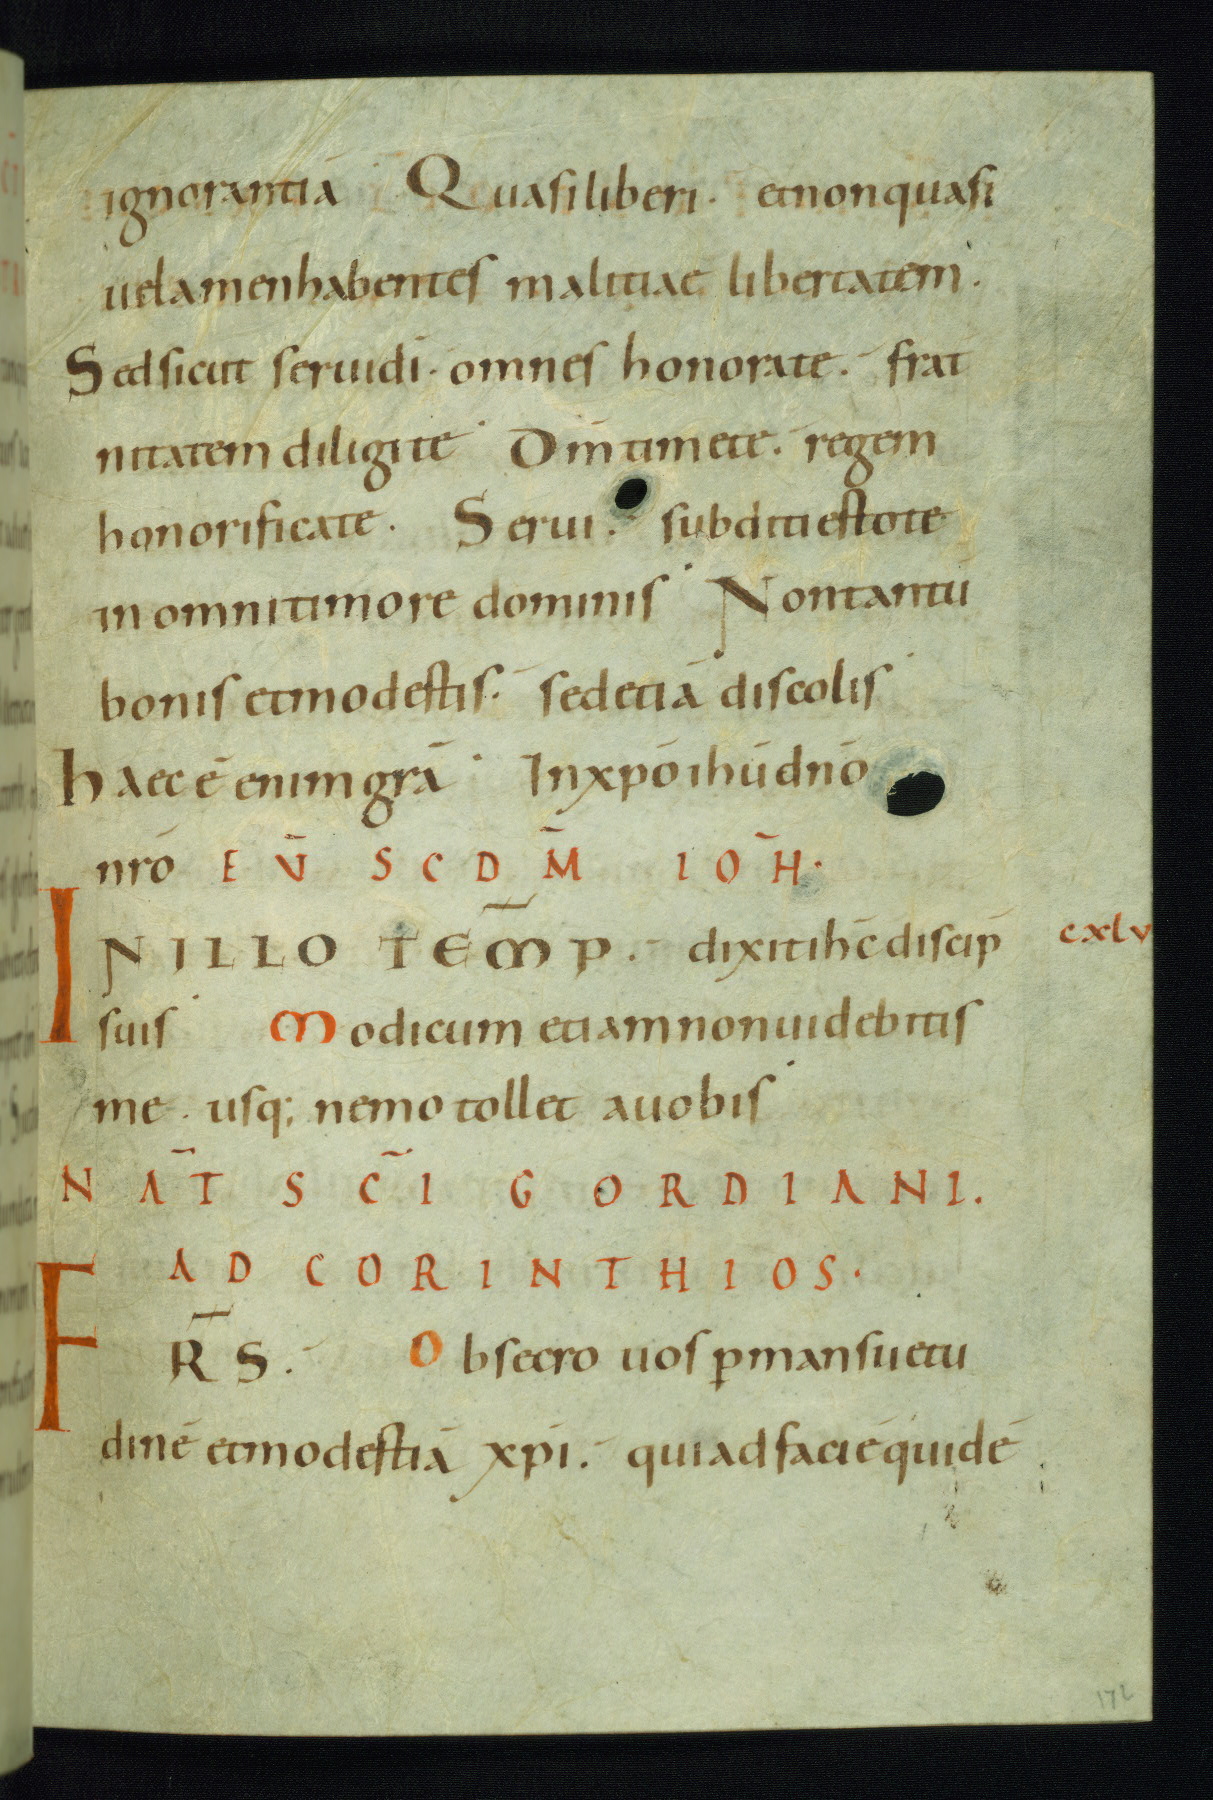 ignorantiā Quasiliberi. etnonquasi
uelamenhabentes malitiae libertatem.
Sedsicut seruidī. omnes honorate. frat̄
nitatem diligite Dm̄timete. regem
honorificate. Serui. subditiestote
inomnitimore dominis Nontantū
bonis etmodestis. sedetiā discolis
haec ē enim grā Inxp̄oihūdnō
nrō EV̄ SCDM̄ IOH̄.
cxlv
INILLO TEM̄P. dixitih̄cdiscip̄
suis Modicum etiamnonuidebitis
me. usq; nemo tollet auobis
NAT̄ SC̄I GORDIANI.
AD CORINTHIOS.
FR̄S. Obsecro uos ꝑmansuetu
dinē etmodestiā xp̄i. quiadfaciēquidē
172